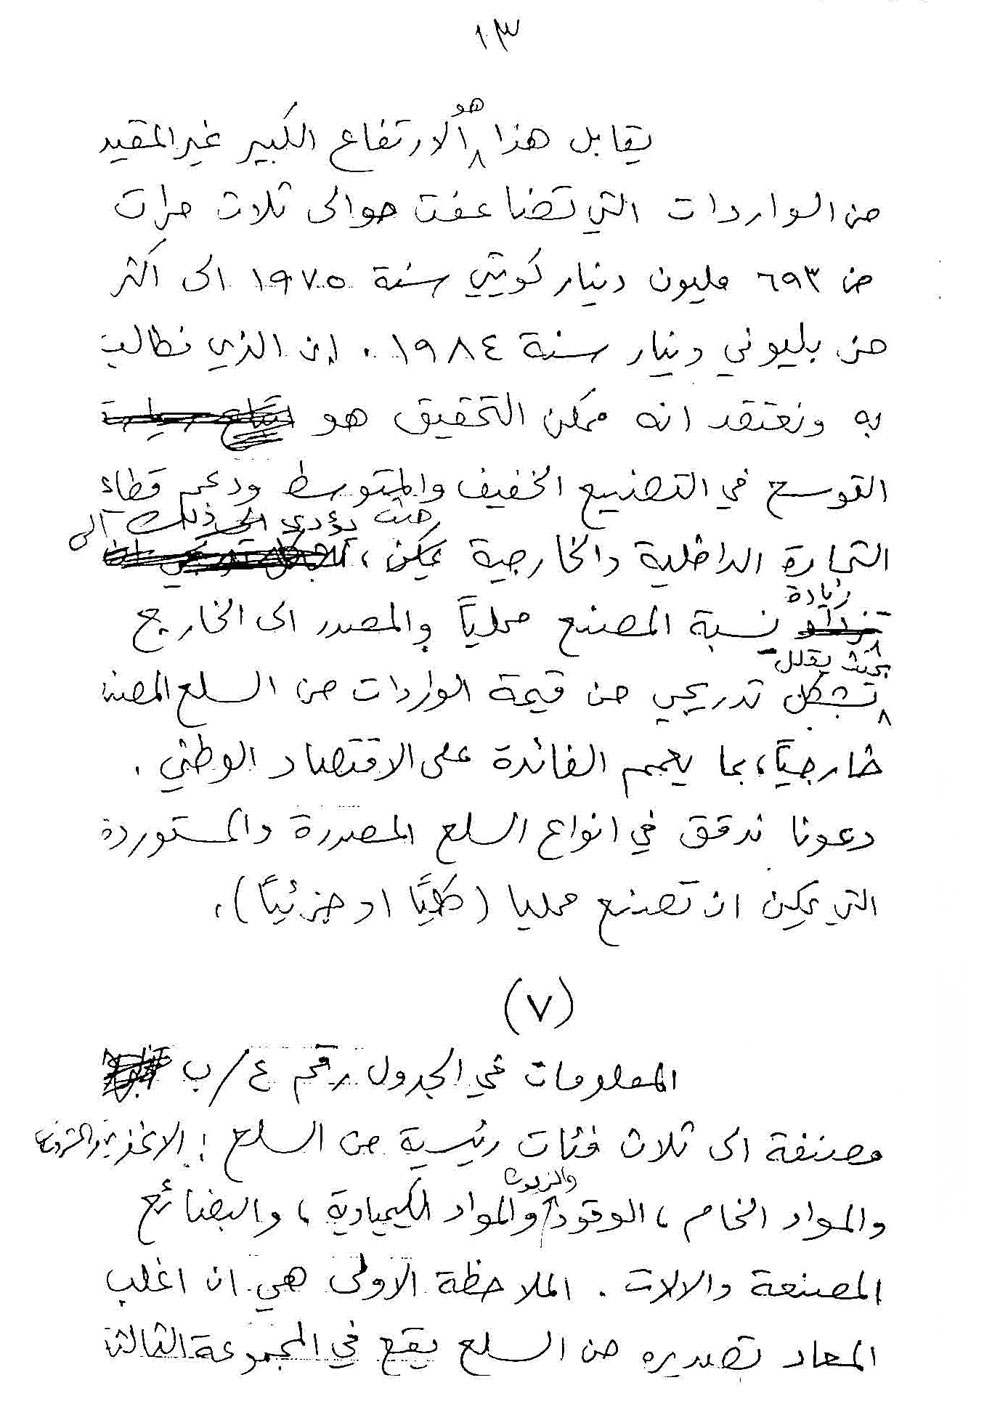 ١٣
يقابل هذا هو الارتفاع الكبير غير المقيد
من الواردات التي تضاعفت حوالى ثلاث مرات
من ٦٩٣ مليون دينار كويتي سنة ١٩٧٥ الى اكثر
من بليوني دينار سنة ١٩٨٤ . ان الذي نطالب
به ونعتقد انه ممكن التحقيق هو
التوسع في التصنيع الخفيف والمتوسط ودعم قطاع
بحيث يؤدي ذلك الى
التجارة الداخلية والخارجية يمكن ،
زيادة
نسبة المصنع محلياً والمصدر الى الخارج
بحيث يقلل
بشكل تدريجي من قيمة الواردات من السلع المصنعة
خارجياً، بما يعمم الفائدة على الاقتصاد الوطني .
دعونا ندقق في انواع السلع المصدرة والمستوردة
التي يمكن ان تصنع محليا (كلياً او جزئياً) .
(٧)
المعلومات في الجدول رقم ٤/ب
مصنفة الى ثلاث فئات رئيسية من السلع : الاغذية والمشروبات
والزيوت
والمواد الخام ، الوقود والمواد الكيميادية ، والبضائع
المصنعة والالات . الملاحظة الاولى هي ان اغلب
المعاد تصديره من السلع يقع في المجموعة الثالثة